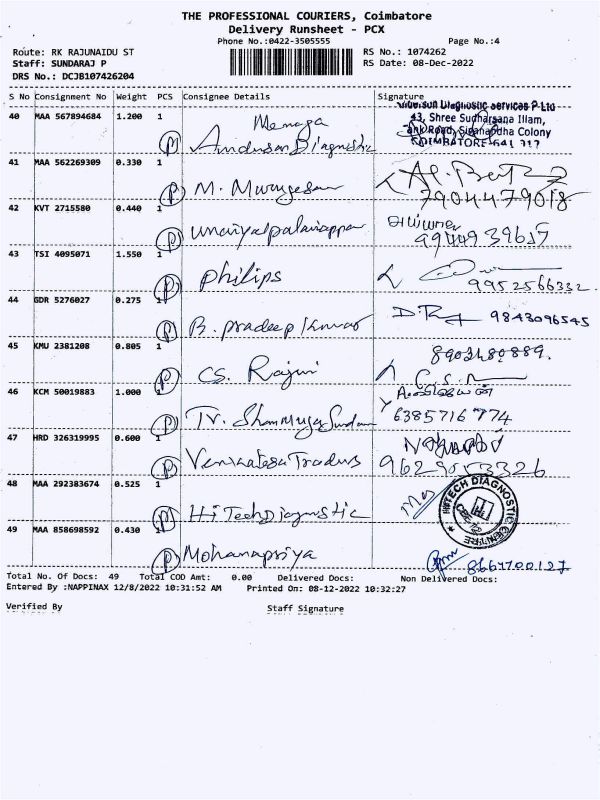 THE PROFESSIONAL COURIERS, Coimbatore
Delivery Runsheet - PCX
Phone No.:0422-3505555 Page No.:4
Route: RK RAJUNAIDU ST RS No.: 1074262
Staff: SUNDARAJ P RS Date: 08-Dec-2022
DRS No.: DCJB107426204
S No Consignment No Weight PCS Consignee Details Signature
40 MAA 567894684 1.200 1 Menaga
P Andusan Diagnostic
Diagnostic Services P Ltd
43, Shree Sudharsana Illam,
Road, Sugandha Colony
COIMBATORE-641
41 MAA 562269309 0.330 1
P M. Murugesan 7904479018
42 KVT 2715580 0.440 1
P unaiyalpalaniappan 9944939617
43 TSI 4095071 1.550 1
P philips 9952566332
44 GDR 5276027 0.275 1
P B. pradeep kumar 9843096545
45 KMU 2381208 0.805 1 8903480889.
P CS. Rajini
46 KCM 50019883 1.000 1
P Tv. Shanmuga Sundaram 6385716774
47 HRD 326319995 0.600 1
P Venkatesa Traders
48 MAA 292383674 0.525 1
P Hi Tech Diagnostic
HITECH DIAGNOSTIC CENTRE
49 MAA 858698592 0.430 1
P Mohanapriya
Total No. Of Docs: 49 Total COD Amt: 0.00 Delivered Docs: Non Delivered Docs:
Entered By :NAPPINAX 12/8/2022 10:31:52 AM Printed On: 08-12-2022 10:32:27
Verified By Staff Signature